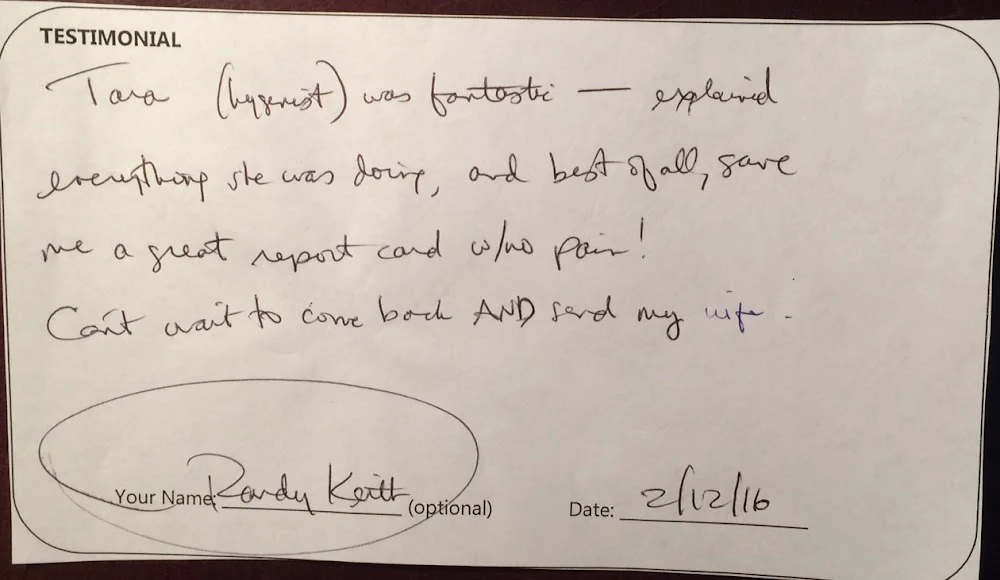 TESTIMONIAL
Tara (hygenist) was fantastic — explained
everything she was doing, and best of all, gave
me a great report card w/no pain!
Can't wait to come back AND send my wife.
Your Name: Randy Keith (optional) Date: 2/12/16